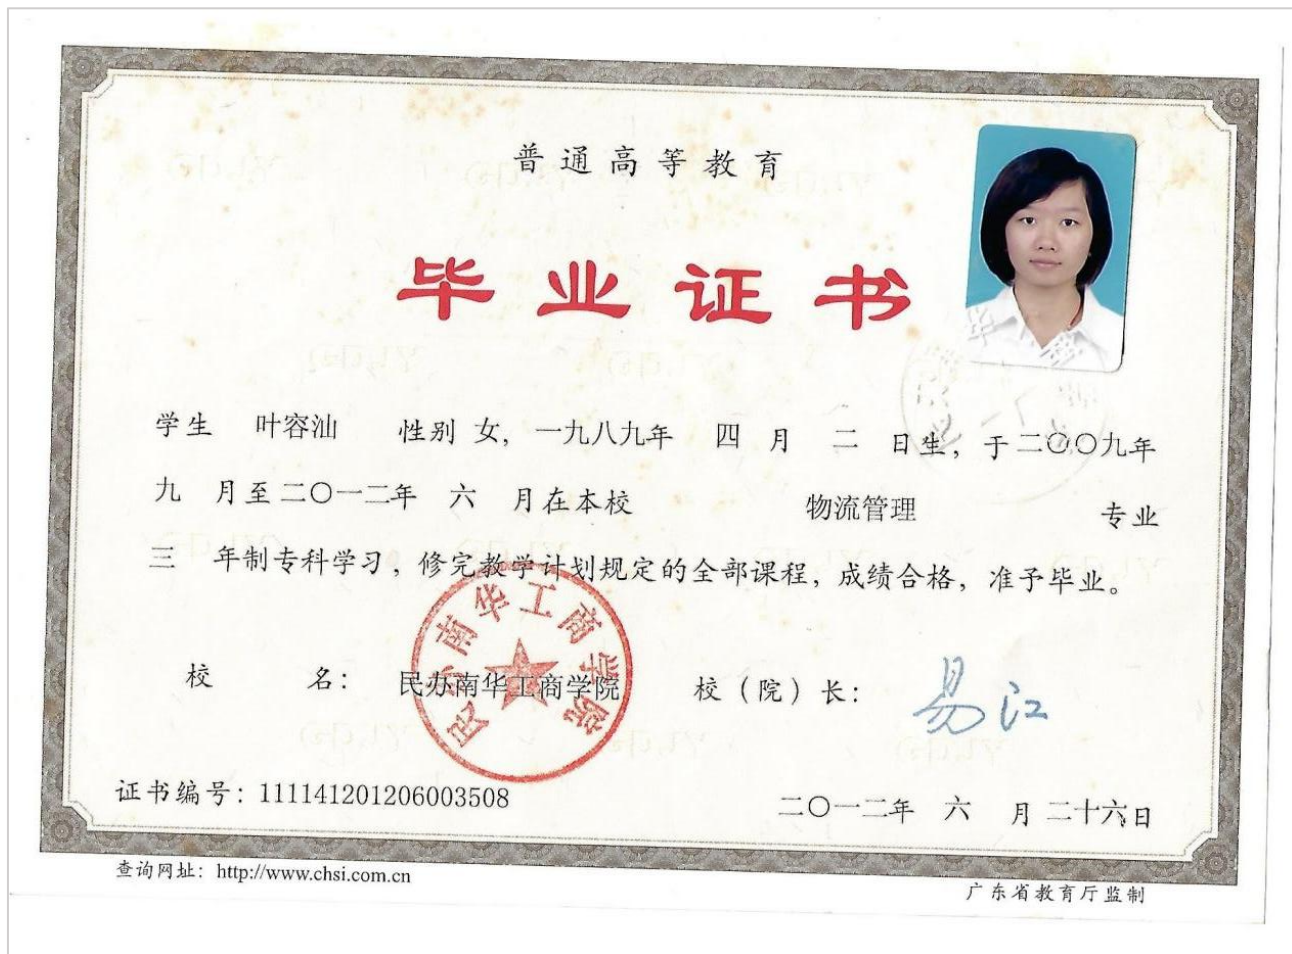 普通高等教育
毕业证书
学生 叶容汕 性别 女，一九八九年 四 月 二 日生，于二〇〇九年
九 月至二〇一二年 六 月在本校 物流管理 专业
三 年制专科学习，修完教学计划规定的全部课程，成绩合格，准予毕业。
民办南华工商学院
校 名： 民办南华工商学院 校（院）长： 易江
证书编号：111141201206003508
二〇一二年 六 月 二十六日
查询网址：http://www.chsi.com.cn
广东省教育厅监制